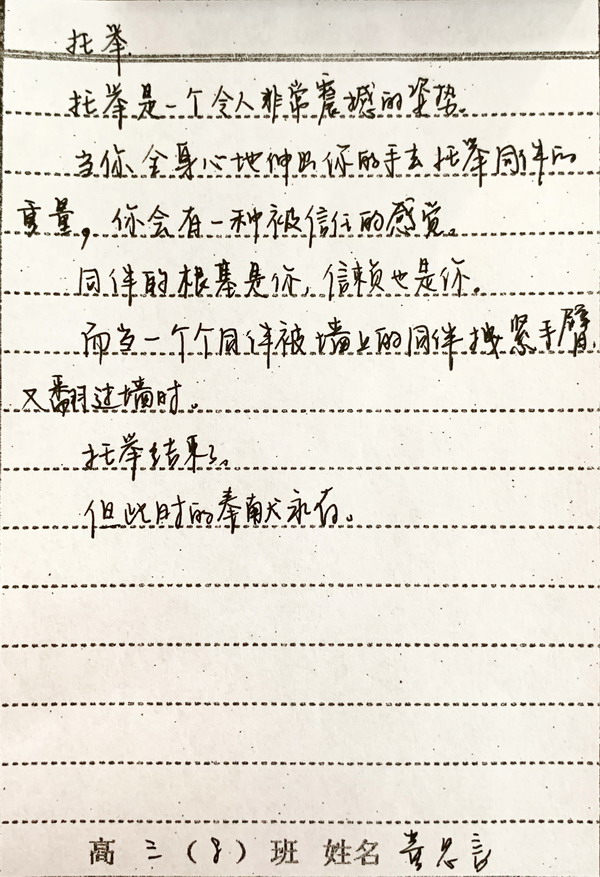 托举.
托举是一个令人非常震撼的姿势。
当你全身心地伸出你的手去托举同伴的
重量，你会有一种被信任的感觉。
同伴的根基是你，信赖也是你。
而当一个个同伴被墙上的同伴拽紧手臂，
又翻过墙时。
托举结束了。
但此时的奉献永存。
高 三 ( 8 ) 班 姓名 黄思言